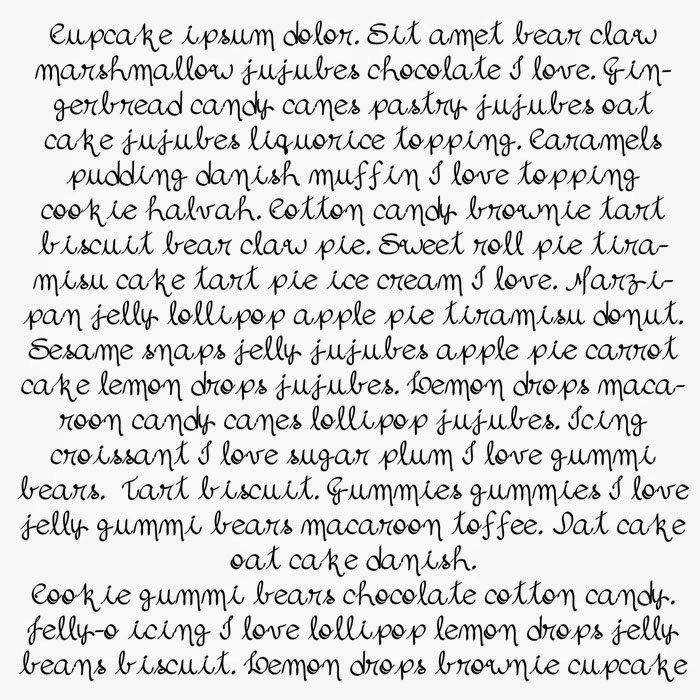 Cupcake ipsum dolor. Sit amet bear claw
marshmallow jujubes chocolate I love. Gin-
gerbread candy canes pastry jujubes oat
cake jujubes liquorice topping. Caramels
pudding danish muffin I love topping
cookie halvah. Cotton candy brownie tart
biscuit bear claw pie. Sweet roll pie tira-
misu cake tart pie ice cream I love. Marzi-
pan jelly lollipop apple pie tiramisu donut.
Sesame snaps jelly jujubes apple pie carrot
cake lemon drops jujubes. Lemon drops maca-
roon candy canes lollipop jujubes. Icing
croissant I love sugar plum I love gummi
bears. Tart biscuit. Gummies gummies I love
jelly gummi bears macaroon toffee. Oat cake
oat cake danish.
Cookie gummi bears chocolate cotton candy.
Jelly-o icing I love lollipop lemon drops jelly
beans biscuit. Lemon drops brownie cupcake